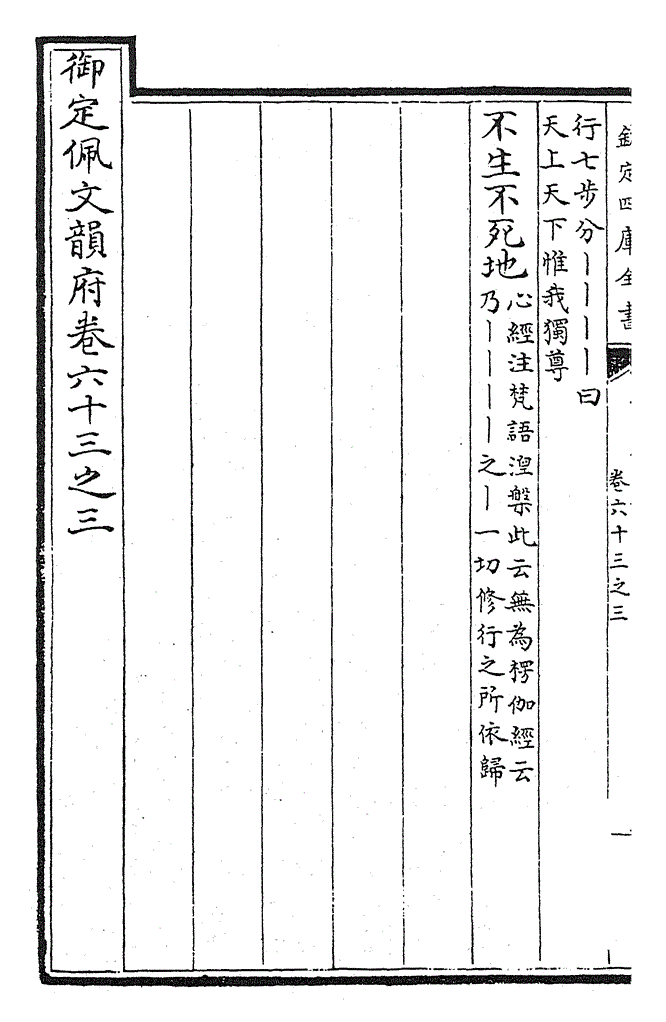 欽定四庫全書
卷六十三之三
行七步分丨丨丨丨曰
天上天下惟我獨尊
不生不死地
心經注梵語涅槃此云無為楞伽經云
乃丨丨丨丨之丨一切修行之所依歸
御定佩文韻府卷六十三之三